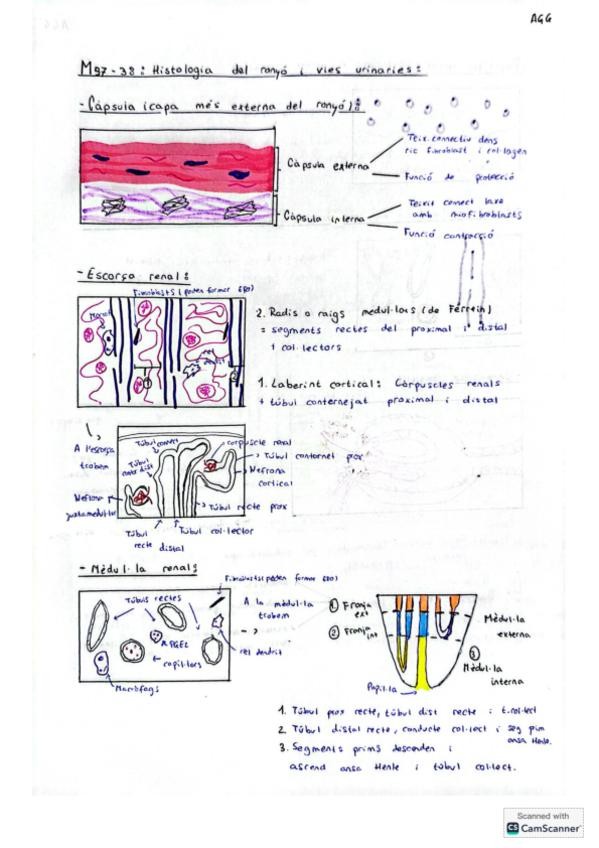 AGG
M97-38: Histologia del ronyó i vies urinaries:
- Càpsula (capa més externa del ronyó):
Càpsula externa
Teix. connectiu dens
ric fibroblast i col·lagen
Funció de protecció
Càpsula interna
Teixit connect laxe
amb miofibroblasts
Funció contracció
- Escorça renal:
Fibroblasts (poden formar EPO)
2. Radis o raigs medul·lars (de Ferrein)
= segments rectes del proximal i distal
i col·lectors
1. Laberint cortical: Còrpuscles renals
+ túbul contornejat proximal i distal
A l'escorça
trobem
Túbul connect
Túbul
contor dist
corpuscle renal
Túbul contornet prox
Nefrona
cortical
Nefrona
juxtamedul·lar
Túbul recte prox
Túbul
recte distal
Túbul col·lector
- Mèdul·la renal:
Fibroblasts (poden formar EPO)
Túbuls rectes
capil·lars
Macròfags
A la mèdul·la
trobem
cel dendrit
1 Franja
ext
2 Franja
int
Mèdul·la
externa
3
Mèdul·la
interna
Papil·la
1. Túbul prox recte, túbul dist recte i t. col·lect
2. Túbul distal recte, conducte col·lect i seg prim
ansa Henle.
3. Segments prims descenden i
ascend ansa Henle i túbul col·lect.
Scanned with
CS CamScanner